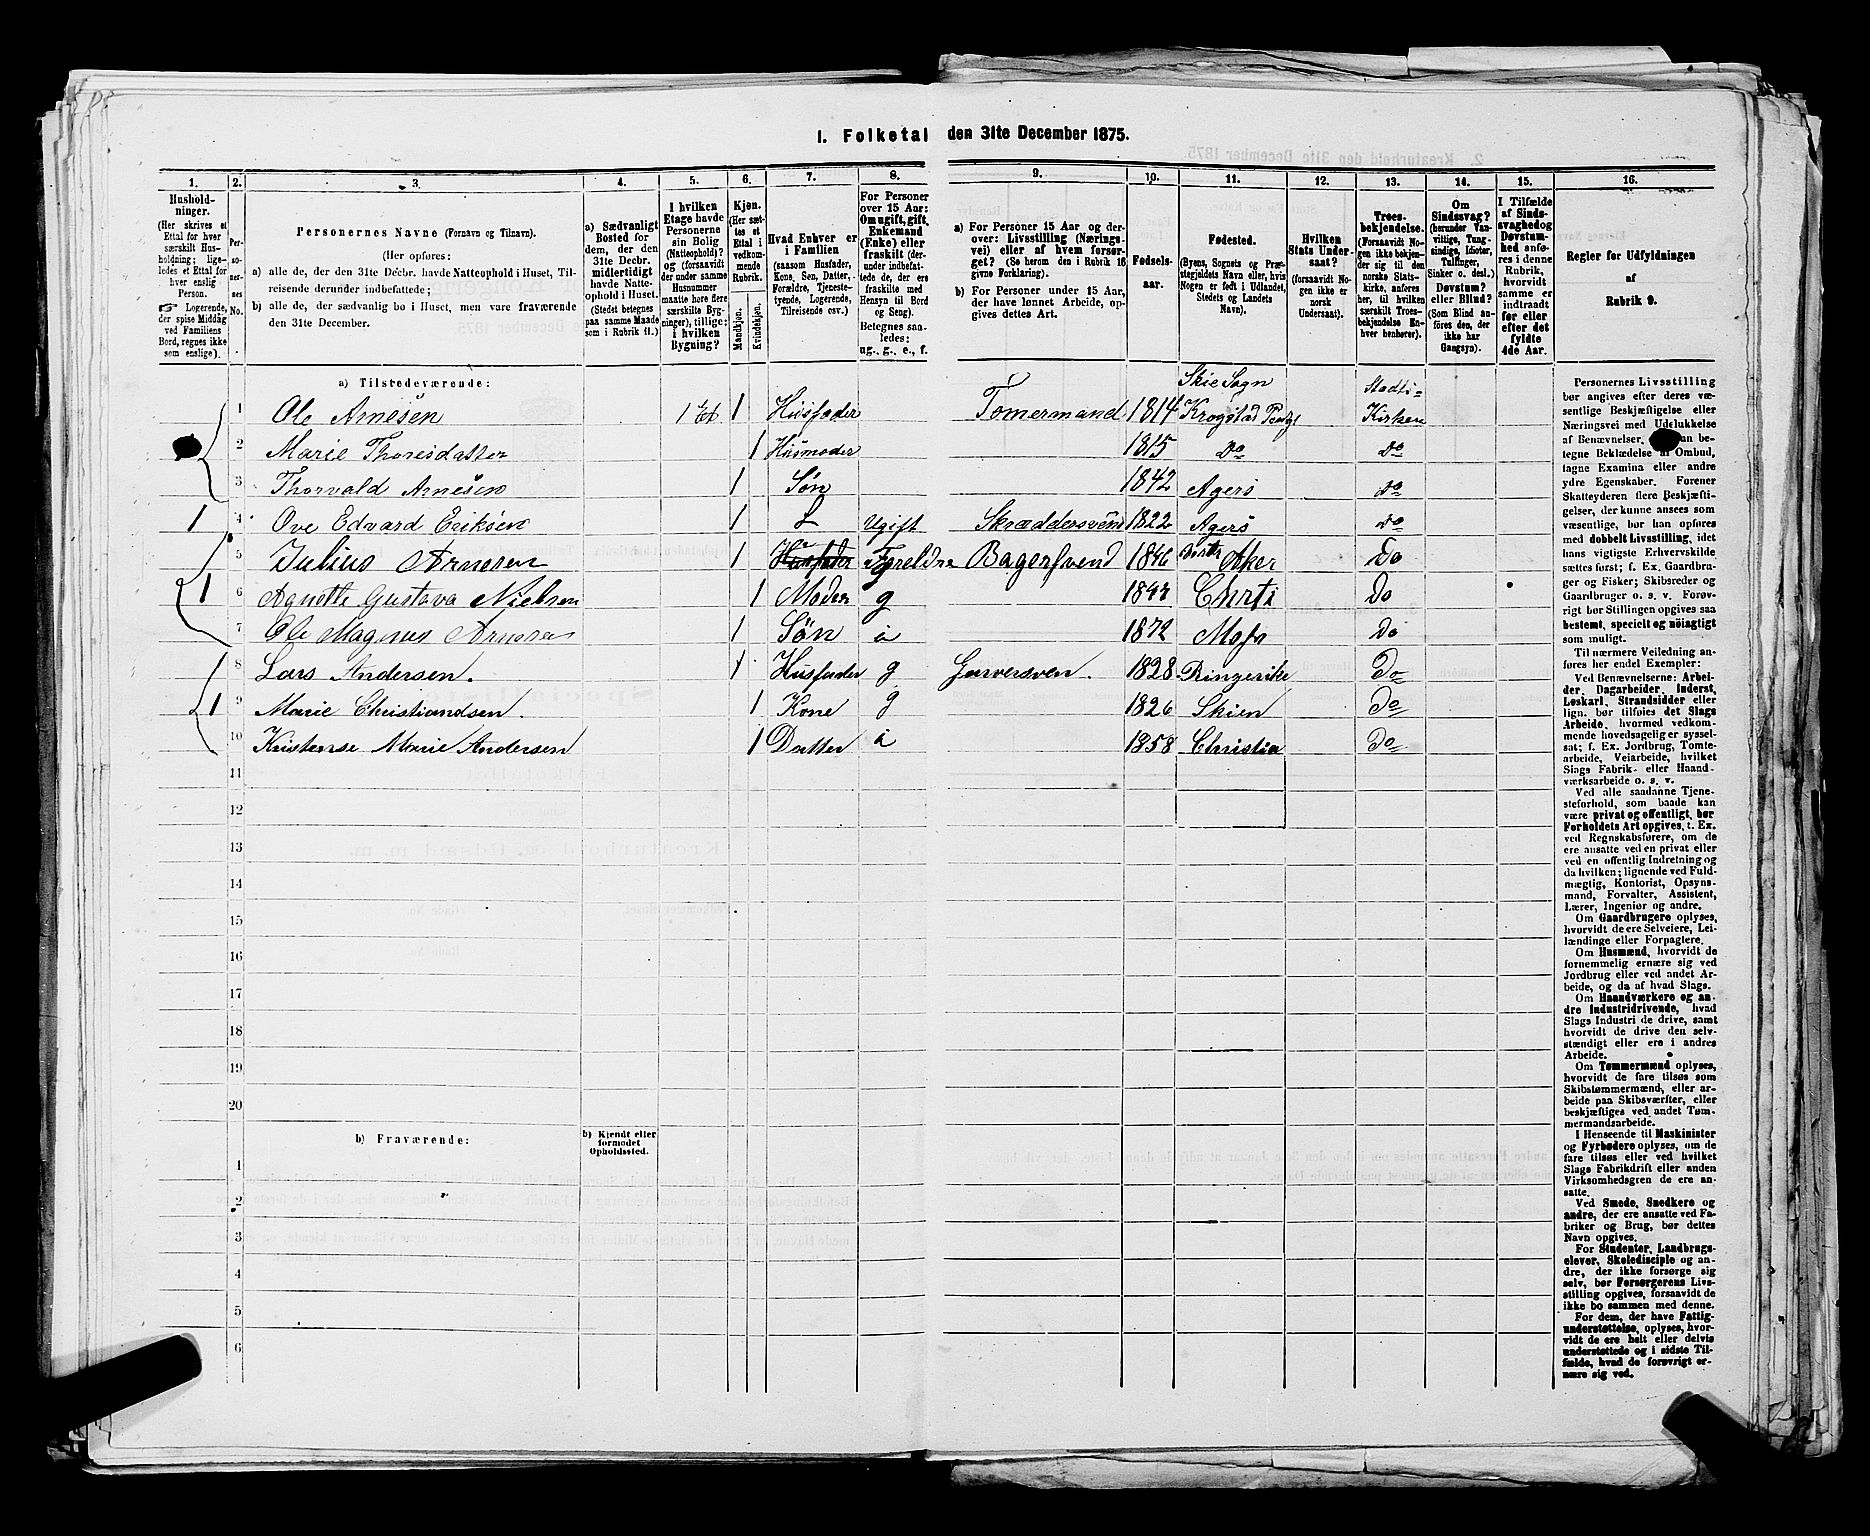 1. Folketal den 31te December 1875.
1. 2. 3. 4. 5. 6. 7. 8. 9. 10. 11. 12. 13. 14. 15. 16.
Husholdninger.
(Her skrives et
Ettal for hver
særskilt Hus-
holdning; lige-
ledes et Ettal for
hver enslig
Person.
Logerende,
der spise Middag
ved Familiens
Bord, regnes ikke
som enslige).
Personernes No.
Personernes Navne (Fornavn og Tilnavn).
(Her opføres:
a) alle de, der den 31te Decbr. havde Natteophold i Huset, Til-
reisende derunder indbefattede;
b) alle de, der sædvanlig bo i Huset, men vare fraværende
den 31te December.
a) Sædvanligt
Bosted for
dem, der den
31te Decbr.
midlertidigt
havde Natte-
ophold i Huset.
(Stedet betegnes
paa samme Maade
som i Rubrik 11.)
I hvilken
Etage havde
Personerne
sin Bolig
(Natteophold)?
og (forsaavidt
der under samme
Husnummer
maatte høre flere
særskilte Byg-
ninger), tillige:
i hvilken
Bygning?
Kjøn.
(Her sæt-
tes et
Ettal i
vedkom-
mende
Rubrik.
Mandkjøn.
Kvindekjøn.
Hvad Enhver er
i Familien
(saasom Husfader,
Kone, Søn, Datter,
Forældre, Tjeneste-
tyende, Logerende,
Tilreisende osv.)
For Personer
over 15 Aar:
Om ugift, gift,
Enkemand
(Enke) eller
fraskilt (der-
under indbefat-
tede de, der ere
fraskilte med
Hensyn til Bord
og Seng).
Betegnes saa-
ledes:
ug., g., e., f.
a) For Personer 15 Aar og der-
over: Livsstilling (Nærings-
vei) eller af hvem forsør-
get? (Se herom den i Rubrik 16
givne Forklaring).
b) For Personer under 15 Aar,
der have lønnet Arbeide, op-
gives dettes Art.
Fødsels-
aar.
Fødested.
(Byens, Sognets og Præ-
stegjeldets Navn eller, hvis
Nogen er født i Udlandet,
Stedets og Landets
Navn).
Hvilken
Stats Under-
saat?
(forsaavidt No-
gen ikke er
norsk
Undersaat).
Troes-
bekjendelse.
(Forsaavidt No-
gen ikke bekjen-
der sig til den
norske Stats-
kirke, anføres
her, til hvilken
særskilt Troes-
bekjendelse En-
hver henhører).
Om
Sindssvag?
(herunder Van-
vittige, Tung-
sindige, Idioter,
Tullinger,
Sinker o. desl.)
Døvstum?
eller Blind?
(Som Blind an-
føres den, der
ikke har
Gangsyn).
I Tilfælde
af Sinds-
svaghed og
Døvstum-
hed anfø-
res i denne
Rubrik,
hvorvidt
samme er
indtraadt
før eller
efter det
fyldte
4de Aar.
Regler for Udfyldningen
af
Rubrik 9.
a) Tilstedeværende:
1 Ole Arnesen 1 Et 1 Husfader Tømermand 1814 Skie Sogn Krogstad Prestgj Stadts- Kirken
2 Marie Thoresdatter 1 Husmoder 1815 Do Do
3 Thorvald Arnesen 1 Søn 1842 Agers Do
1 4 Ove Edvard Eriksen 1 L Ugift Skræddersvend 1822 Agers Do
5 Julius Arnesen 1 Husfader Forældre Bagersvend 1846 Aker Do
1 6 Agnette Gustava Nielsen 1 Moder g Chrti Do
7 Ole Magnus Arnesen 1 Søn 1872 Do
8 Lars Andersen. 1 Husfader g Garversven. 1828 Ringerike Do
1 9 Marie Christiandsen. 1 Kone g 1826 Skien Do
10 Kristense Marie Andersen 1 Datter 1858 Christia Do
11
12
13
14
15
16
17
18
19
20
b) Fraværende:
b) Kjendt eller
formodet
Opholdssted.
1
2
3
4
5
6
Personernes Livsstilling
bør angives efter deres væ-
sentlige Beskjæftigelse eller
Næringsvei med Udelukkelse
af Benævnelser, be-
tegne Beklædelse af Ombud,
tagne Examina eller andre
ydre Egenskaber. Forener
Skatteyderen flere Beskjæfti-
gelser, der kunne ansees som
væsentlige, bør han opføres
med dobbelt Livsstilling, idet
hans vigtigste Erhvervskilde
sættes først; f. Ex. Gaardbru-
ger og Fisker; Skibsreder og
Gaardbruger o. s. v. Forøv-
rigt bør Stillingen opgives saa
bestemt, specielt og nøiagtigt
som muligt.
Til nærmere Veiledning an-
føres her endel Exempler:
Ved Benævnelserne: Arbei-
der, Dagarbeider, Inderst,
Løskarl, Strandsidder eller
lign. bør tilføies det Slags
Arbeide, hvormed vedkom-
mende hovedsagelig er syssel-
sat; f. Ex. Jordbrug, Tomte-
arbeide, Veiarbeide, hvilket
Slags Fabrik- eller Haand-
værksarbeide o. s. v.
Ved alle saadanne Tjene-
steforhold, som baade kan
være privat og offentligt, bør
Forholdets Art opgives, t. Ex.
ved Regnskabsførere, om de
ere ansatte ved en privat eller
ved en offentlig Indretning og
da hvilken; lignende ved Fuld-
mægtig, Kontorist, Opsyns-
mand, Forvalter, Assistent,
Lærer, Ingeniør og andre.
Om Gaardbrugere oplyses,
hvorvidt de ere Selveiere, Lei-
lændinge eller Forpagtere.
Om Husmænd, hvorvidt de
fornemmelig ernære sig ved
Jordbrug eller ved andet Ar-
beide, og da af hvad Slags.
Om Haandværkere og an-
dre Industridrivende, hvad
Slags Industri de drive, samt
hvorvidt de drive den selv-
stændigt eller ere i andres
Arbeide.
Om Tømmermænd oplyses,
hvorvidt de fare tilsøs som
Skibstømmermænd, eller ar-
beide paa Skibsværfter, eller
beskjæftiges ved andet Tøm-
mermandsarbeide.
I Henseende til Maskinister
og Fyrbødere oplyses, om de
fare tilsøs eller ved hvilket
Slags Fabrikdrift eller anden
Virksomhedsgren de ere an-
satte.
Ved Smede, Snedkere og
andre, der ere ansatte ved Fa-
briker og Brug, bør dettes
Navn opgives.
For Studenter, Landbrugs-
elever, Skoledisciple og an-
dre, der ikke forsørge sig
selv, bør Forsørgerens Livs-
stilling opgives, forsaavidt de
ikke bo sammen med denne.
For dem, der have Fattig-
understøttelse, oplyses, hvor-
vidt de ere helt eller delvis
understøttede og i sidste Til-
fælde, hvad de forøvrigt er-
nære sig ved.